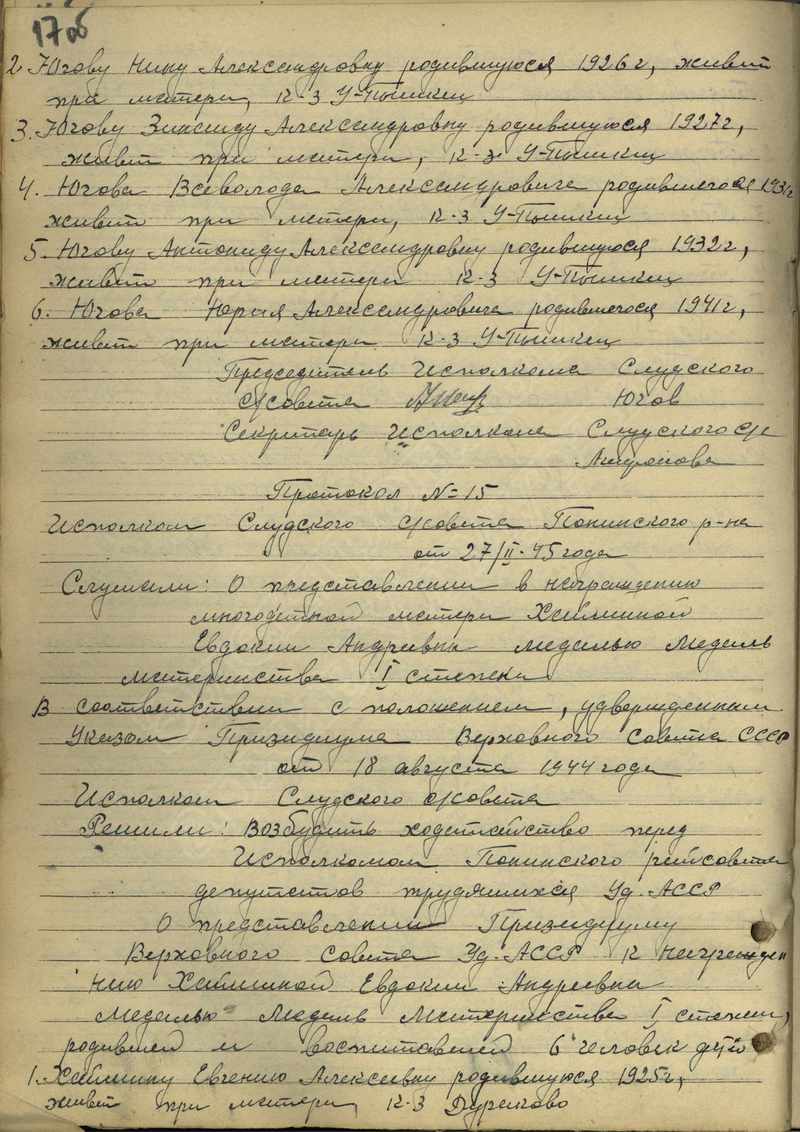 17 об
2 Югову Нину Александровну родившуюся 1926 г, живет
при матери, к-з У-Пышкец
3. Югову Зинаиду Александровну родившуюся 1927 г,
живет при матери, к-з У-Пышкец
4. Югова Всеволода Александровича родившегося 1931 г
живет при матери, к-з У-Пышкец
5. Югову Антониду Александровну родившуюся 1932 г,
живет при матери к-з У-Пышкец
6. Югова Юрия Александровича родившегося 1941 г,
живет при матери к-з У-Пышкец
Председатель Исполкома Слудского
с/совета Югов
Секретарь Исполкома Слудского с/с
Протокол № 15
Исполком Слудского с/совета Понинского р-на
от 27/II-45 года
Слушали: О представлении в награждению
многодетной матери
Евдокии Андреевны медалью Медаль
материнства I степени
В соответствии с положением, удвержденным
Указом Призидиума Верховного Совета СССР
от 18 августа 1944 года
Исполком Слудского с/совета
Решили: Возбудить ходатайство перед
Исполкомом Понинского райсовета
депутатов трудящихся Уд. АССР
О представлении Призидиуму
Верховного Совета Уд. АССР к награжден
нию Евдокии Андреевны
медалью Медаль Материнства I степени,
родившей и воспитавшей 6 человек детей
1. Евгению Алексеевну родившуюся 1925 г,
живет при матери, к-з